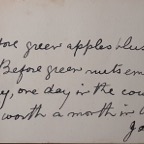 ore green apples blus
Before green nuts em
y, one day in the cou
worth a month in